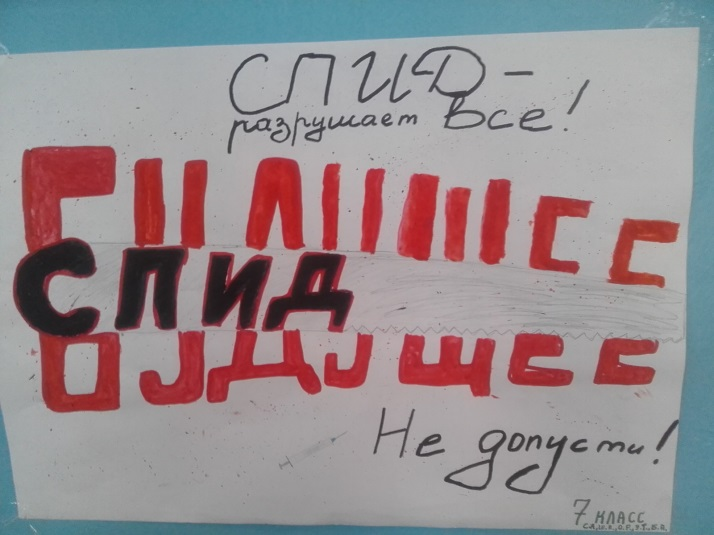 СПИД -
разрушает все!
БУДУЩЕЕ
СПИД
Не допусти!
7 класс